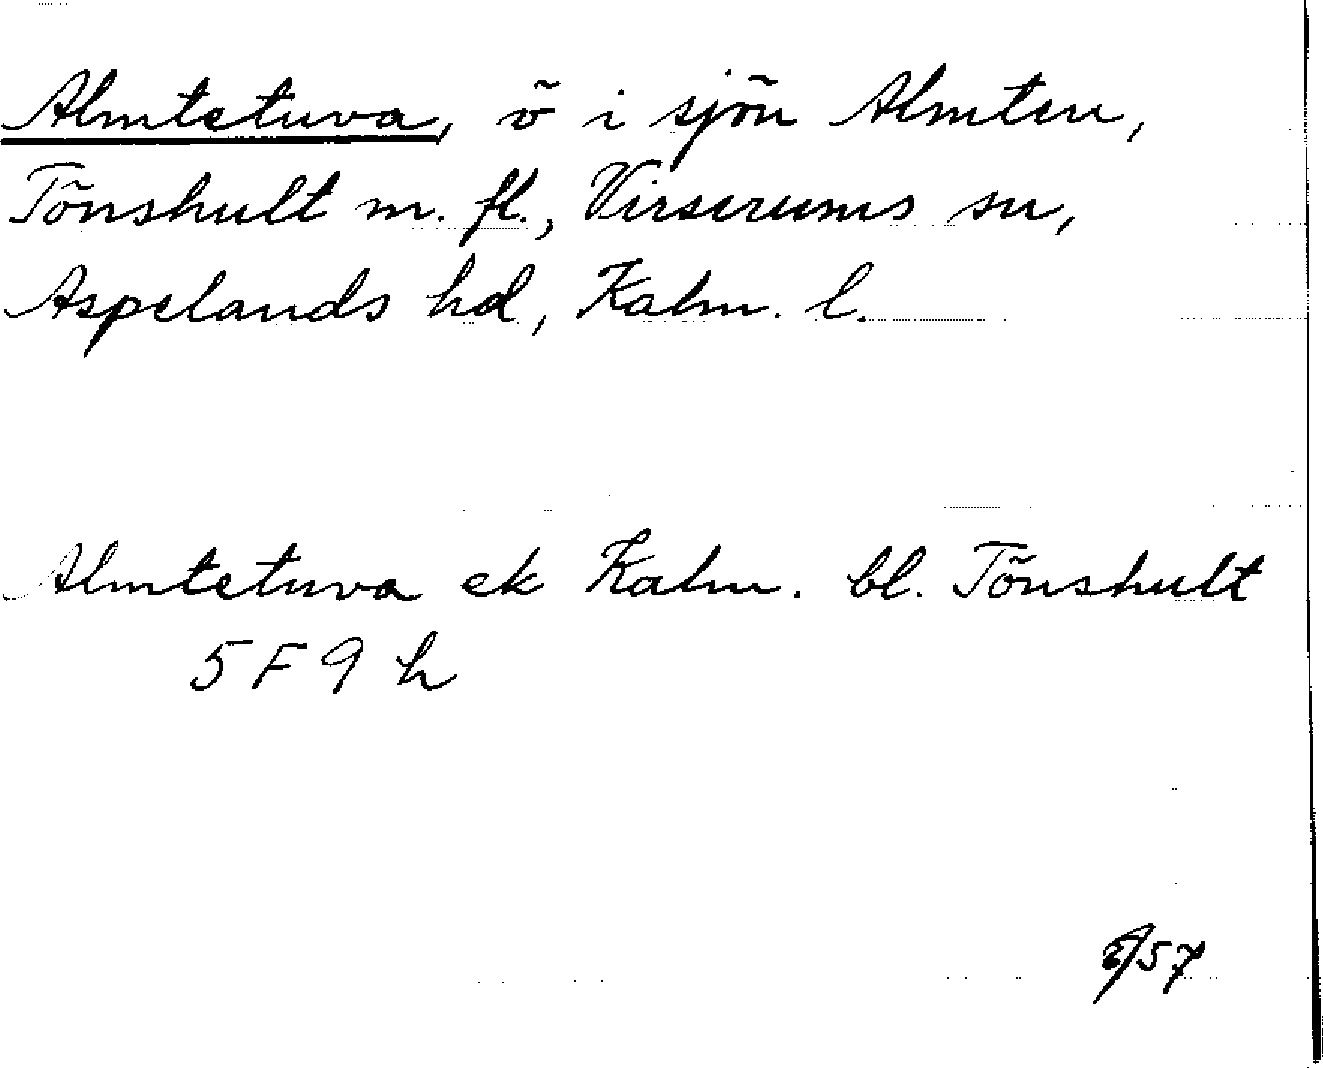 Almtetuva, ö i sjön Almten,
Tönshult m. fl., Virserums sn,
Aspelands hd, Kalm. l.
Almtetuva ek Kalm. bl. Tönshult
5 F 9 h